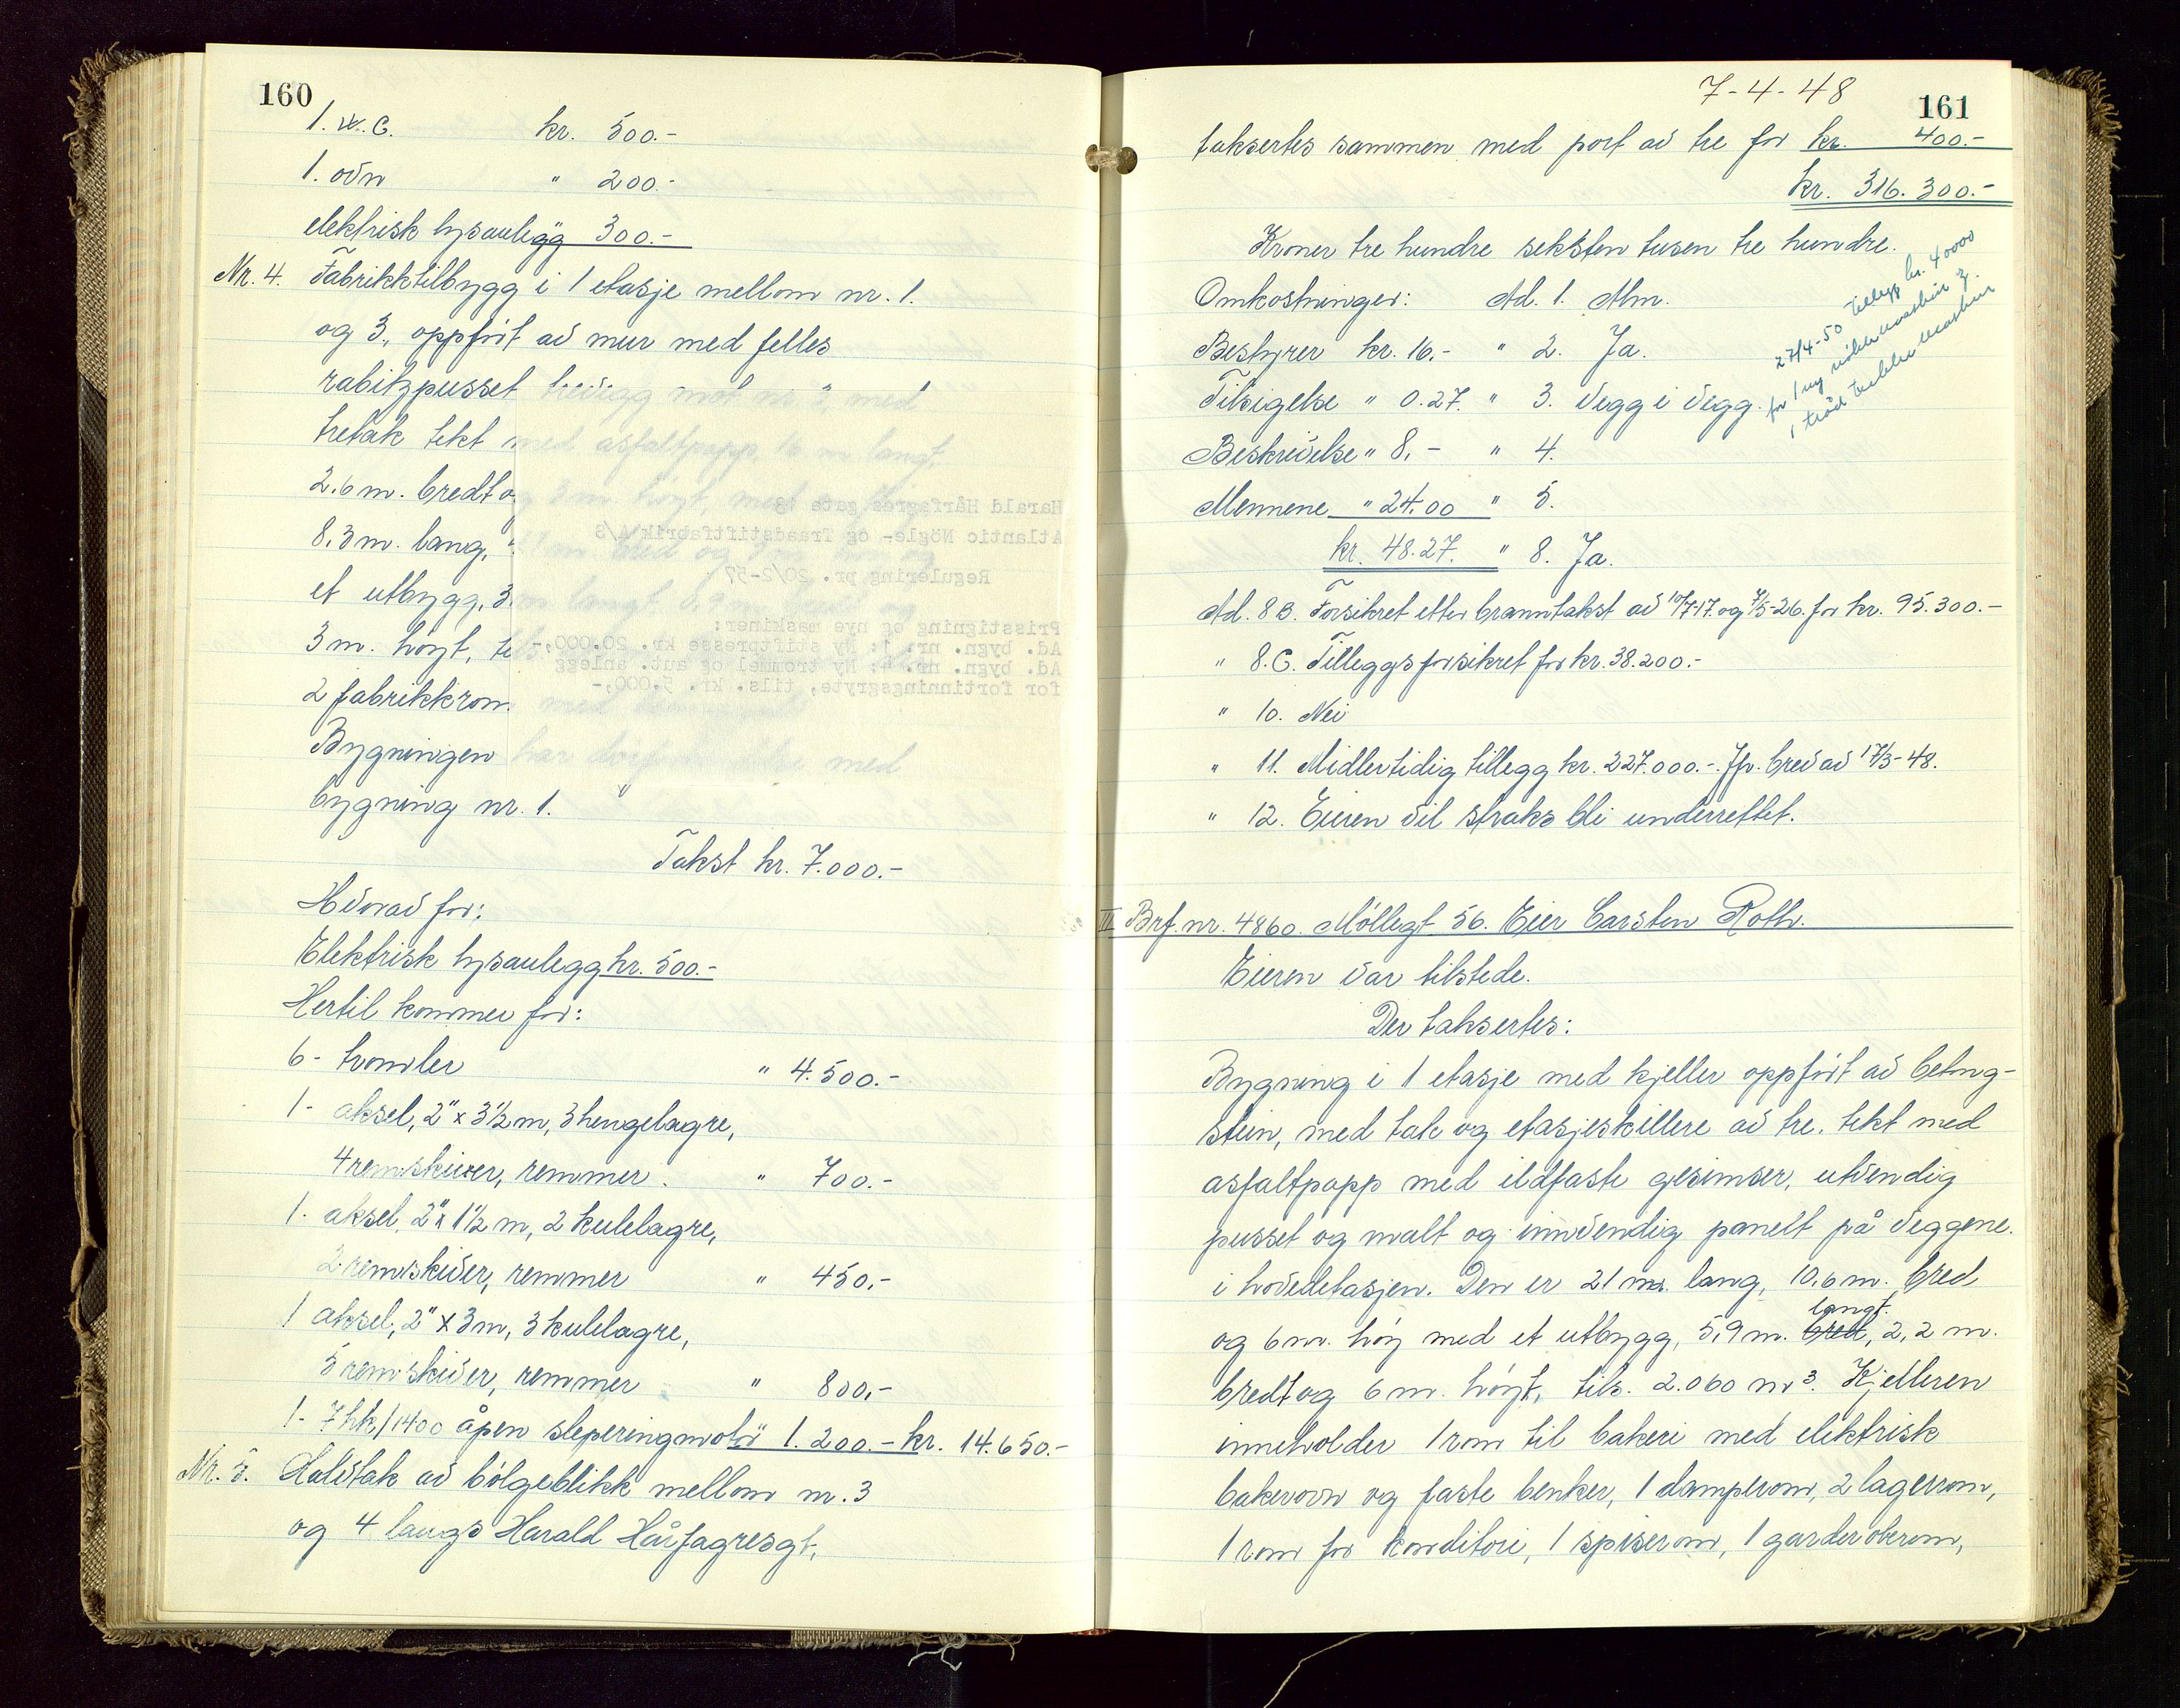 160
1. W.C. kr. 500.-
1. ovn " 200.-
elektrisk lysanlegg 300.-
Nr. 4. Fabrikktilbygg i 1 etasje mellom nr. 1.
og 3., oppført av mur med felles
rabitzpusset trevegg mot nr 3, med
tretak tekt med asfaltpapp, 16 m langt,
2.6 m. bredt og 3 m høyt, med
8.3 m. lang, 1 m. bred og
et utbygg, 3. m langt 0,9 m bred og
3 m. høyt, ti
2 fabrikkrom med
Bygningen har med
bygning nr. 1.
Harald Hårfagres gate 18
Atlantic Nögle- og Traadstiftfabrik A/S
Regulering pr. 20/2-57
Prisstigning og nye maskiner:
Ad. bygn. nr. 1: Ny stiftpresse kr. 20.000,-
Ad. bygn. nr. 4: Ny trommel og aut. anlegg
for fortinningsgryte, tils. kr. 5.000,-
Takst kr. 7.000.-
Hvorav for:
Elektrisk lysanlegg kr. 500.-
Hertil kommer for:
6 - tromler " 4.500.-
1 - aksel, 2" x 3½ m, 3 hengelagre,
4 remskiver, remmer. " 700.-
1. aksel, 2" x 1½ m, 2 kulelagre,
2 remskiver, remmer " 450.-
1 aksel, 2" x 3 m, 3 kulelagre,
5 remskiver, remmer " 800.-
1 - 7 hk/1400 åpen sleperingmotor 1.200.- kr. 14.650.-
Nr. 5. Halvtak av bølgeblikk mellom nr. 3
og 4 langs Harald Hårfagresgt,
7-4-48
161
taksertes sammen med port av tre for kr. 400.-
kr. 316.300.-
Kroner tre hundre seksten tusen tre hundre.
Omkostninger: Ad. 1. Alm.
Bestyrer kr. 16.- " 2. Ja.
Tilsigelse " 0.27. " 3. Vegg i vegg.
Beskrivelse " 8.- " 4.
Mennene " 24.00 " 5.
kr. 48.27. " 8. Ja.
27/4-50 tillegg kr. 40000
for 1 ny maskin
1 tråd maskin
Ad. 8 B. Forsikret etter branntakst av 10/7-17 og 7/5-26. for kr. 95.300.-
" 8. C. Tilleggsforsikret for kr. 38.200.-
" 10. Nei
" 11. Midlertidig tillegg kr. 227.000.-. Jfr. brev av 17/3-48.
" 12. Eieren vil straks bli underrettet.
II Brf. nr. 4860. Møllegt 56. Eier Carsten Roth.
Eieren var tilstede.
Der taksertes:
Bygning i 1 etasje med kjeller oppført av betong-
stein, med tak og etasjeskillere av tre. tekt med
asfaltpapp med ildfaste gesimser, utvendig
pusset og malt og innvendig panelt på veggene.
i hovedetasjen. Den er 21 m. lang, 10.6 m. bred
og 6 m. høy med et utbygg, 5,9 m. bred langt, 2,2 m.
bredt og 6 m. høyt, tils. 2.060 m³. Kjelleren
inneholder 1 rom til bakeri med elektrisk
bakerovn og faste benker, 1 damprom, 2 lagerrom,
1 rom for konditori, 1 spiserom, 1 garderoberom,